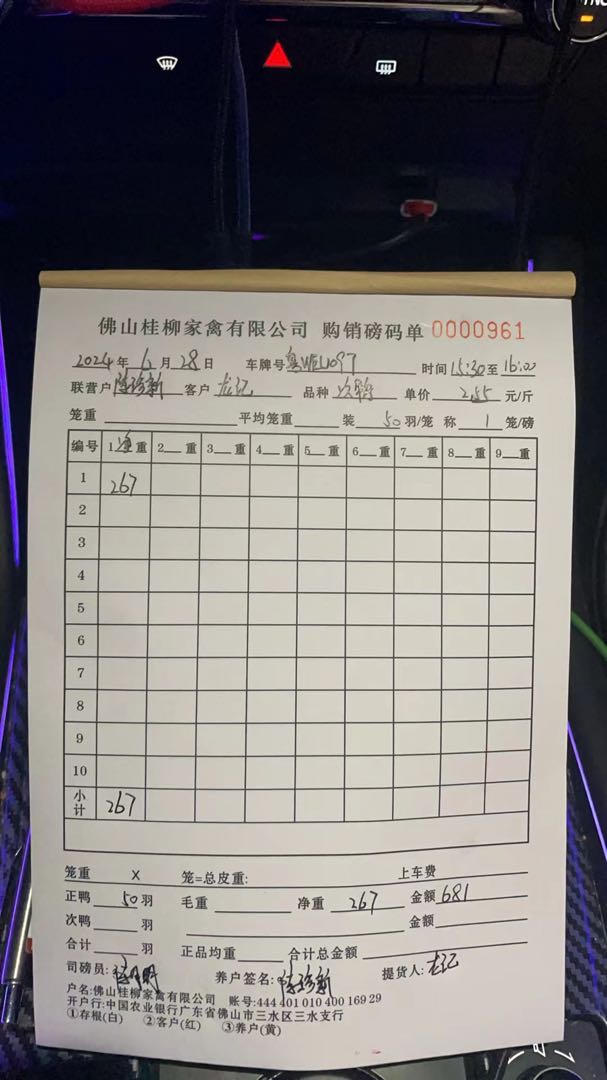 佛山桂柳家禽有限公司 购销磅码单 0000961
2024年 6月 28日 车牌号 时间 15:30 至 16:00
联营户 陈珍新 客户 龙记 品种 次鸭 单价 2.55 元/斤
笼重 平均笼重 装 50 羽/笼 称 1 笼/磅
编号 1 净重 2 重 3 重 4 重 5 重 6 重 7 重 8 重 9 重
1 267
2
3
4
5
6
7
8
9
10
小计 267
笼重 X 笼=总皮重: 上车费
正鸭 50 羽 毛重 净重 267 金额 681
次鸭 羽 金额
合计 羽 正品均重 合计总金额
司磅员: 养户签名: 陈珍新 提货人: 龙记
户名:佛山桂柳家禽有限公司 账号:444 401 010 400 169 29
开户行:中国农业银行广东省佛山市三水区三水支行
①存根(白) ②客户(红) ③养户(黄)